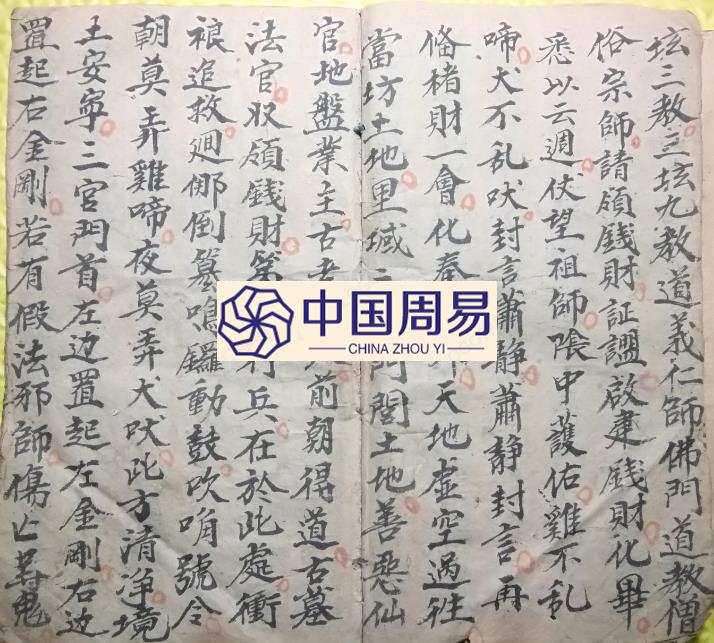 坛三教三坛九教道義仁師佛門道教僧
俗宗師請領錢財証盟啟建錢財化畢
悉以云週伏望祖師隂中護佑雞不乱
啼犬不乱吠封言蕭静蕭静封言再
俻楮財一會化奉天地虚空過往
當坊土地里域土地善惡仙
官地盤業主古前朝得道古墓
法官收領錢財兵在於此處衝
裉追救廻倒篆鳴鑼動鼓吹角號令
朝莫弄雞啼夜莫弄犬吠此方清净境
土安寧三官門首左边置起左金剛右边
置起右金剛若有假法邪師傷亡鬼
中国周易
CHINA ZHOU YI